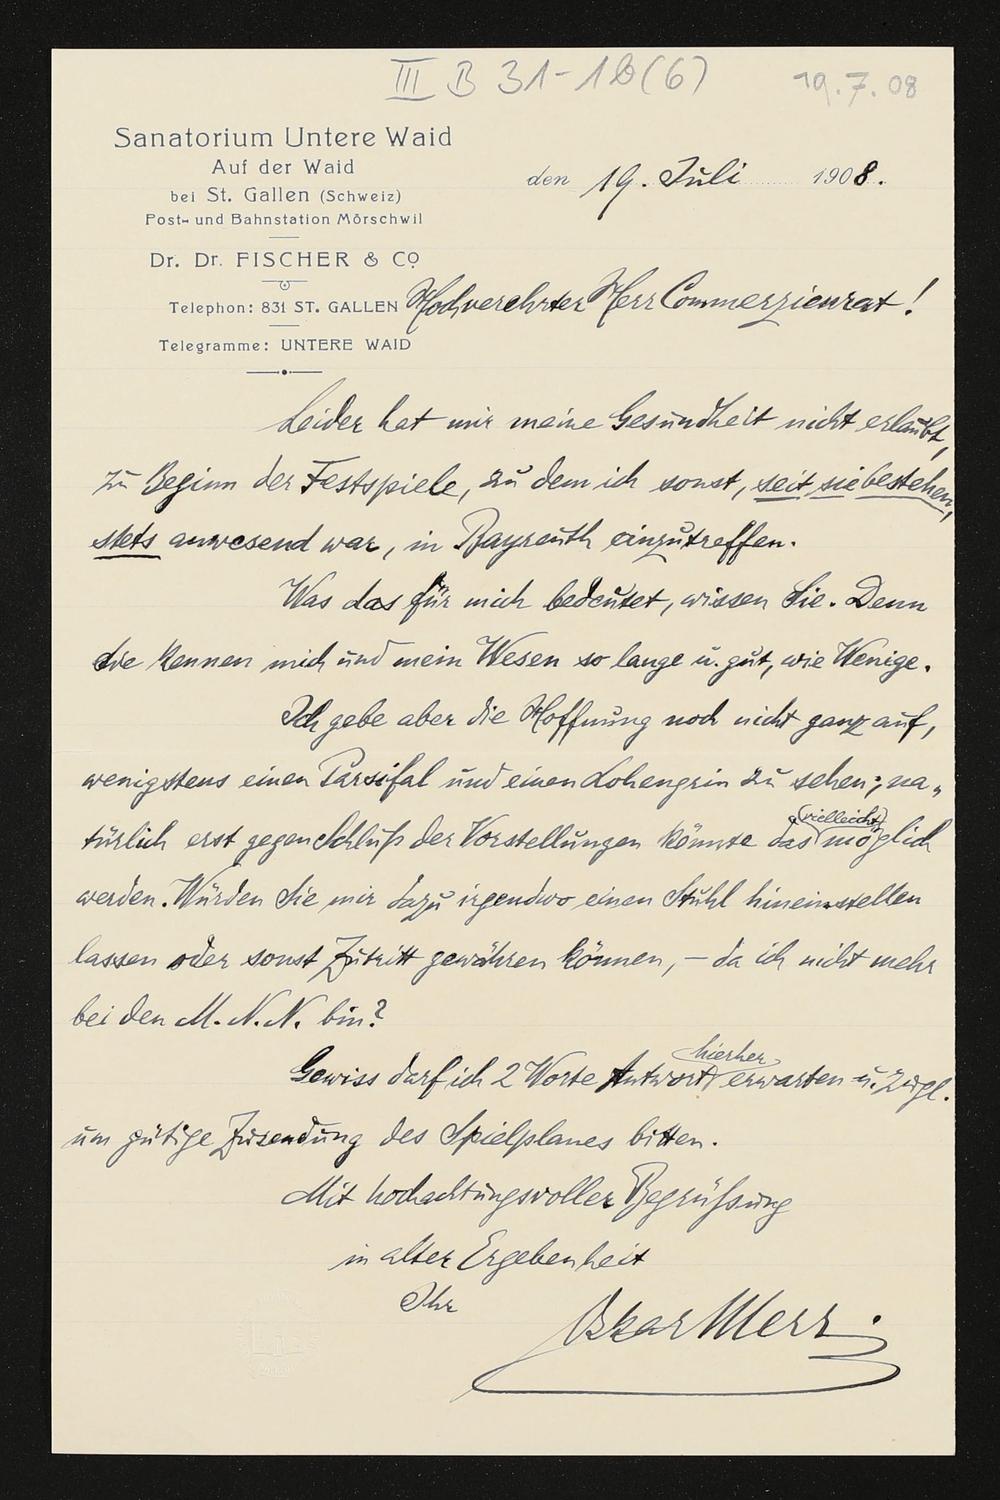 III B 31-1b(6)
19.7.08
Sanatorium Untere Waid
Auf der Waid
bei St. Gallen (Schweiz)
Post- und Bahnstation Mörschwil
Dr. Dr. FISCHER & Co
Telephon: 831 ST. GALLEN
Telegramme: UNTERE WAID
den 19. Juli 1908.
Hochverehrter Herr Commerzienrat!
Leider hat mir meine Gesundheit nicht erlaubt,
zu Beginn der Festspiele, zu dem ich sonst, seit sie bestehen,
stets anwesend war, in Bayreuth einzutreffen.
Was das für mich bedeutet, wissen Sie. Denn
Sie kennen mich und mein Wesen so lange u. gut, wie Wenige.
Ich gebe aber die Hoffnung noch nicht ganz auf,
wenigstens einen Parsifal und einen Lohengrin zu sehen; na„
türlich erst gegen Schluß der Vorstellungen könnte das (vielleicht) möglich
werden. Würden Sie mir dazu irgendwo einen Stuhl hineinstellen
lassen oder sonst Zutritt gewähren können, – da ich nicht mehr
bei den M. N. N. bin?
Gewiss darf ich 2 Worte Antwort hierher erwarten u. zugl.
um gütige Zusendung des Spielplanes bitten.
Mit hochachtungsvoller Begrüßung
in alter Ergebenheit
Ihr
Oskar Merz.